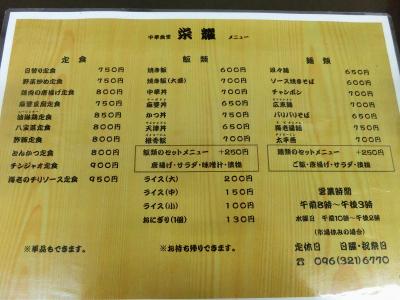 中華食堂 栄耀 メニュー
定食
日替り定食 750円
野菜炒め定食 750円
鶏肉の唐揚げ定食 800円
麻婆豆腐定食 750円
油淋鶏定食 850円
八宝菜定食 800円
酢豚定食 800円
とんかつ定食 850円
チンジャオ定食 900円
海老のチリソース定食 950円
※単品もできます。
飯類
焼き飯 600円
焼き飯(大盛) 700円
中華丼 700円
麻婆丼 650円
かつ丼 750円
天津丼 650円
650円
飯類のセットメニュー +250円
唐揚げ・サラダ・味噌汁・漬物
ライス(大) 200円
ライス(中) 150円
ライス(小) 100円
おにぎり(1個) 130円
※お持ち帰りできます。
麺類
坦々麺 650円
ソース焼きそば 650円
チャンポン 700円
広東麺 700円
パリパリそば 650円
750円
太平燕 700円
麺類のセットメニュー +250円
ご飯・唐揚げ・サラダ・漬物
営業時間
午前8時~午後3時
水曜日 午前10時~午後2時
(市場休みの場合)
定休日 日曜・祝祭日
☎ 096(321)6770